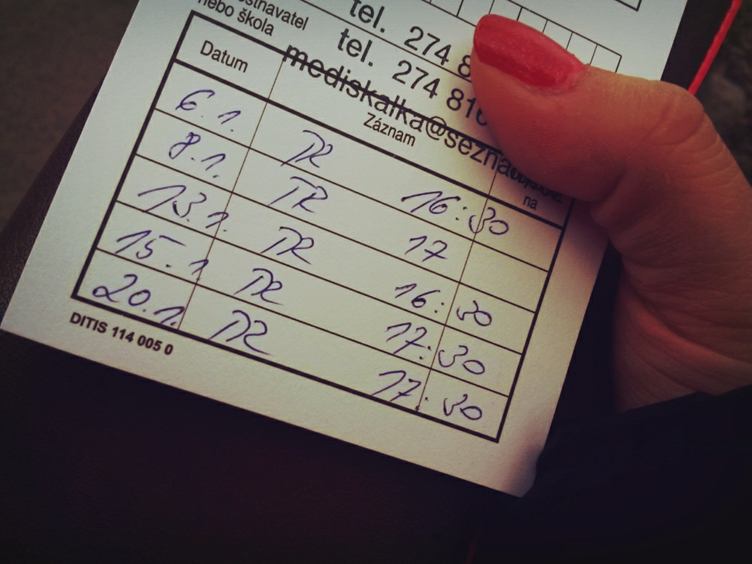 nebo škola
tel. 274 8
tel. 274 816
mediskalka@sezna
Datum Záznam na
6.1. TR 16:30
8.1. TR 17
13.1. TR 16:30
15.1 TR 17:30
20.1. TR 17:30
DITIS 114 005 0